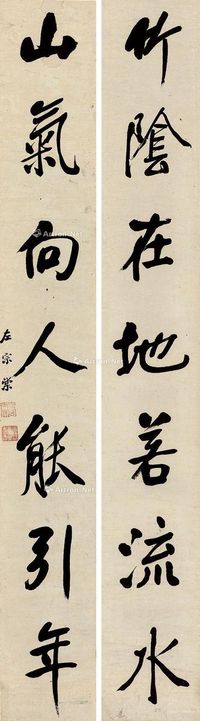 竹陰在地若流水
山氣向人能引年
左宗棠